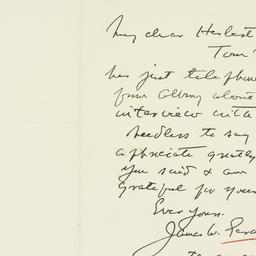 My dear Herbert
Tom
has just telephoned
from Albany about
interview with
Needless to say
appreciate greatly
you said & am
grateful for your
Ever yours
James W.